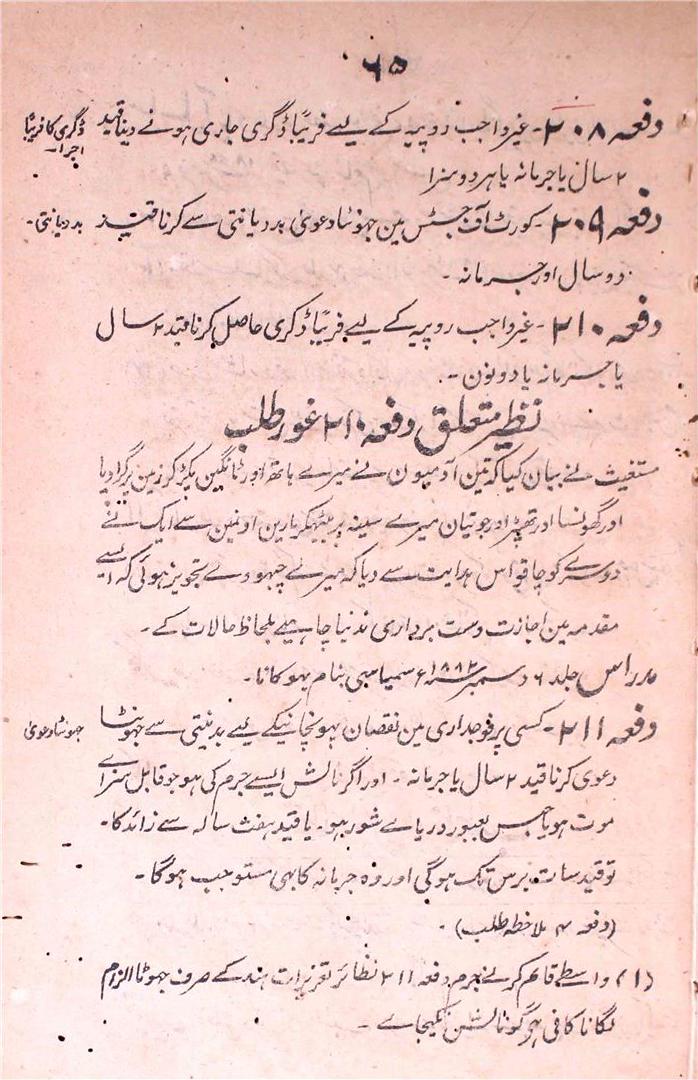 ۶۵
دفعہ ۲۰۸- غیر واجب روپیہ کے لیے فریبًا ڈگری جاری ہونے دینا قید
ڈگری کا فریبًا
اجرا۔
۲ سال یا جرمانہ یا ہر دو سزا
دفعہ ۲۰۹- کورٹ آف جسٹس مین جھوٹا دعویٰ بددیانتی سے کرنا قید
بددیانتی۔
دو سال اور جرمانہ۔
دفعہ ۲۱۰- غیر واجب روپیہ کے لیے فریبًا ڈگری حاصل کرنا قید ۲ سال
یا جرمانہ یا دونون۔
نظیر متعلق دفعہ ۲۱۰ غور طلب
مستغیث نے بیان کیا کہ تین آدمیون نے میرے ہاتھ اور ٹانگین پکڑ کر زمین پر گرا دیا
اور گھونسا اور تھپڑ اور جوتیان میرے سینہ پر بیٹھکر مارین اونمین سے ایک نے
دوسرے کو چاقو اس ہدایت سے دیا کہ میرے چبھو دے تجویز ہوئی کہ ایسے
مقدمہ مین اجازت دست برداری ندینا چاہیے بلحاظ حالات کے۔
مدراس جلد ۶ دسمبر ۱۸۸۲ء سمیاسبی بنام بہوکانا۔
دفعہ ۲۱۱- کسی پر فوجداری مین نقصان پہونچانیکے لیے بدنیتی سے جھوٹا
جھوٹا دعویٰ
دعوی کرنا قید ۲ سال یا جرمانہ۔ اور اگر نالش ایسے جرم کی ہو جو قابل سزاے
موت ہو یا حبس بعبور دریاے شور ہو۔ یا قید ہفت سالہ سے زائد کا۔
تو قید سات برس تک ہوگی اور وہ جرمانہ کا بھی مستوجب ہوگا۔
(دفعہ ۴ ملاحظہ طلب)۔
(۱) واسطے قائم کرنے جرم دفعہ ۲۱۱ نظائر تعزیرات ہند کے صرف جھوٹا الزام
لگانا کافی ہے گو نالش نکیجاے۔